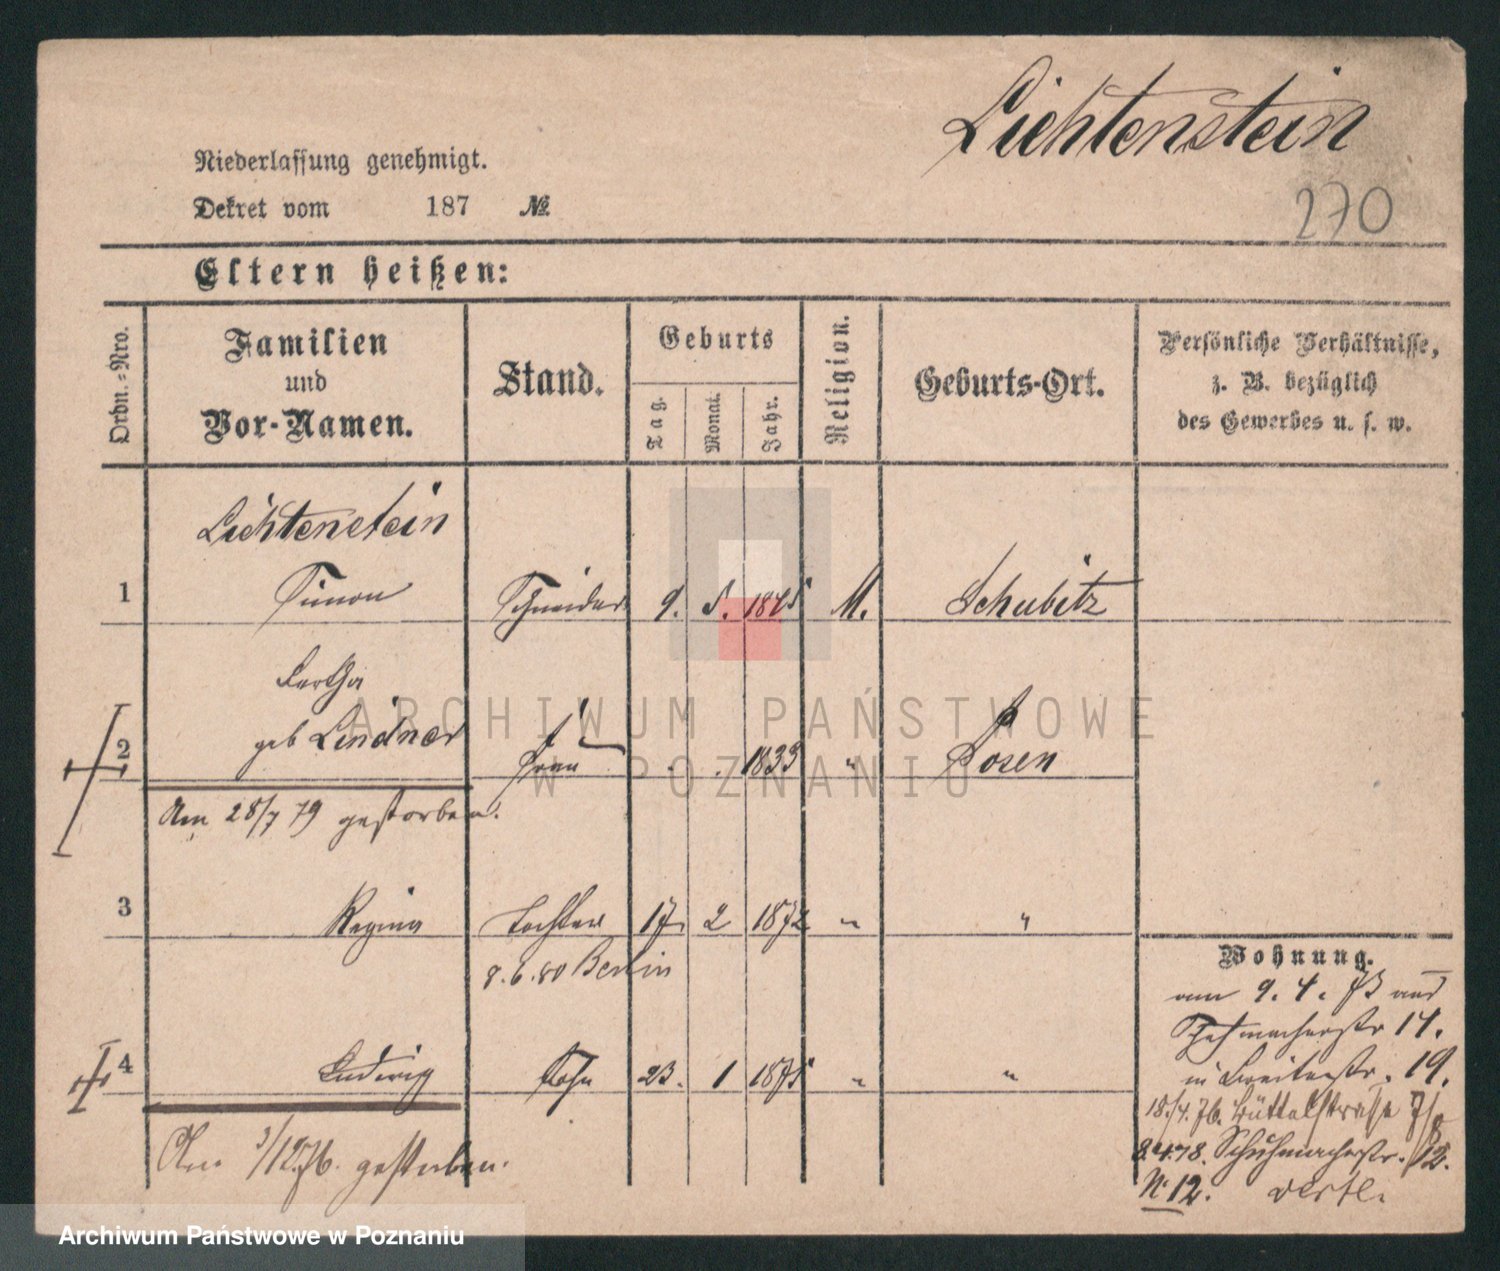 Lichtenstein
270
Niederlassung genehmigt.
Dekret vom 187 №
Eltern heißen:
Ordn.-Nro.
Familien
und
Vor-Namen.
Stand.
Geburts
Tag.
Monat.
Jahr.
Religion.
Geburts-Ort.
Persönliche Verhältnisse,
z. B. bezüglich
des Gewerbes u. s. w.
Lichtenstein
1 Simon Schneider 9. 5. 1845 M. Schubitz
Bertha
2 geb Lindner Frau 1833 " Posen
Am 28/7 79 gestorben.
3 Regina Tochter 17. 2 1872 " "
8.6.80 Berlin
4 Ludwig Sohn 23. 1 1875 " "
Am 3/12 76. gestorben.
Wohnung.
am 9. 4. 73 aus
Schuhmacherstr 14.
in Breitestr. 19.
18./4.76. Büttelstrasse 7/8
8.4.78. Schuhmacherstr. 12.
№ 12.
ARCHIWUM PAŃSTWOWE
W POZNANIU
Archiwum Państwowe w Poznaniu